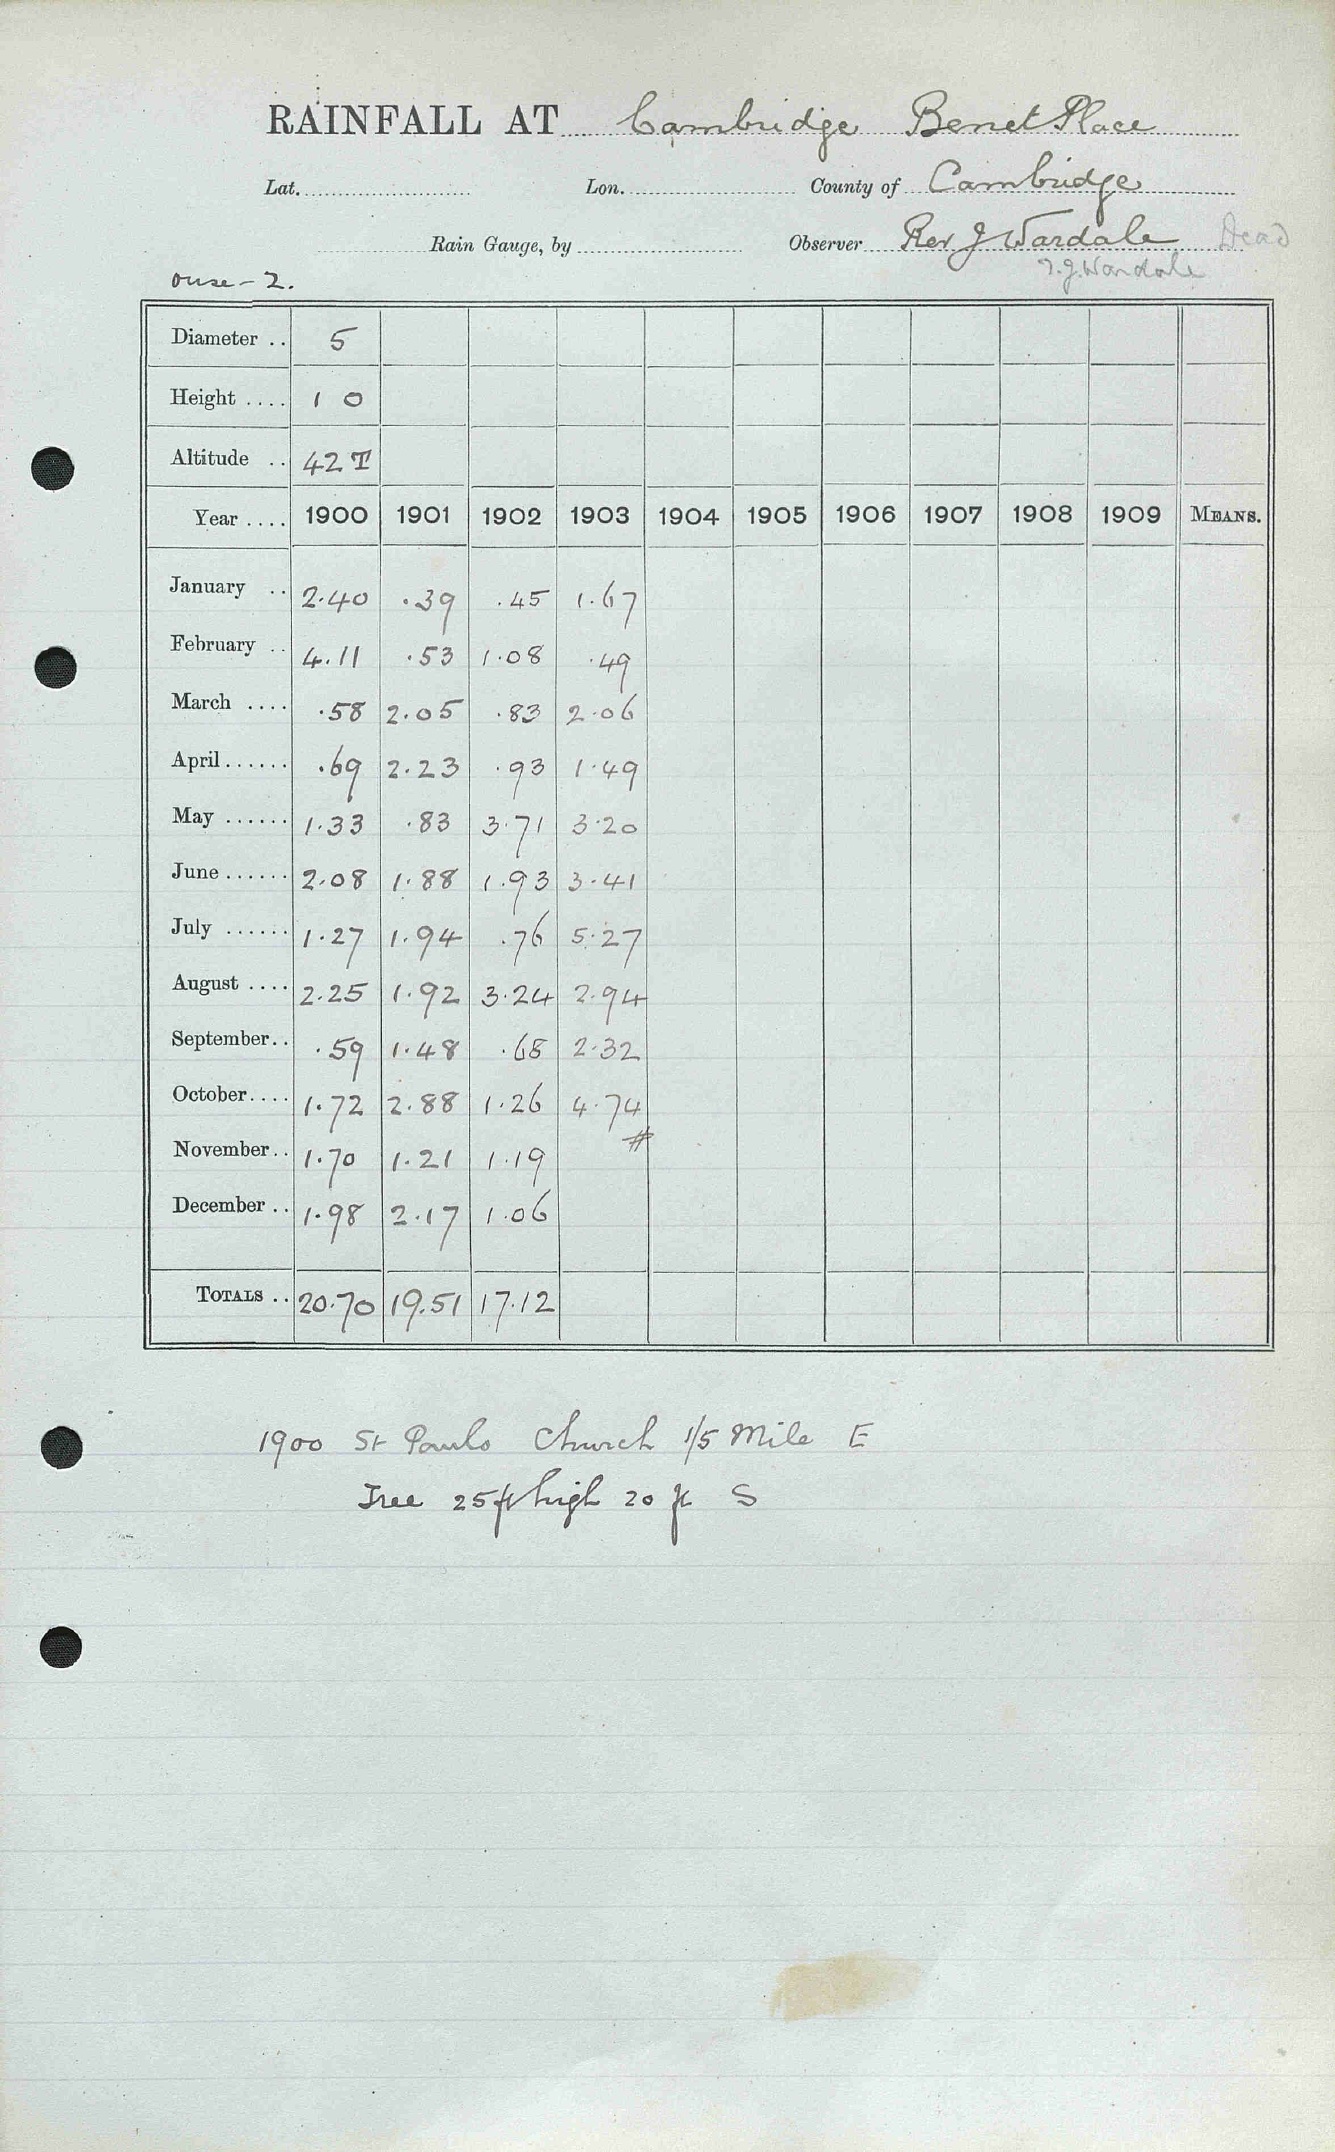 RAINFALL AT Cambridge Benet Place
Lat. Lon. County of Cambridge
Rain Gauge, by Observer Rev J Wardale Dead
T.J. Wardale
Ouse - 2.
Diameter .. 5
Height .... 1 0
Altitude .. 42 T
Year .... 1900 1901 1902 1903 1904 1905 1906 1907 1908 1909 MEANS.
January .. 2.40 .39 .45 1.67
February .. 4.11 .53 1.08 .49
March .... .58 2.05 .83 2.06
April ...... .69 2.23 .93 1.49
May ...... 1.33 .83 3.71 3.20
June ...... 2.08 1.88 1.93 3.41
July ...... 1.27 1.94 .76 5.27
August .... 2.25 1.92 3.24 2.94
September .. .59 1.48 .68 2.32
October .... 1.72 2.88 1.26 4.74
#
November .. 1.70 1.21 1.19
December .. 1.98 2.17 1.06
TOTALS .. 20.70 19.51 17.12
1900 St Pauls Church 1/5 Mile E
Tree 25 ft high 20 ft S